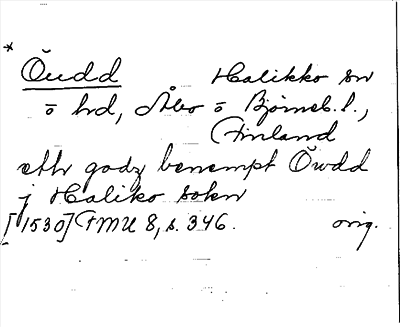 *
Öudd Halikko sn
ö hd, Åbo ö Björneb. l.,
Finland
ett godz benempt Öwdd
j Haliko sokn
[1530] FMU 8, s. 346. orig.